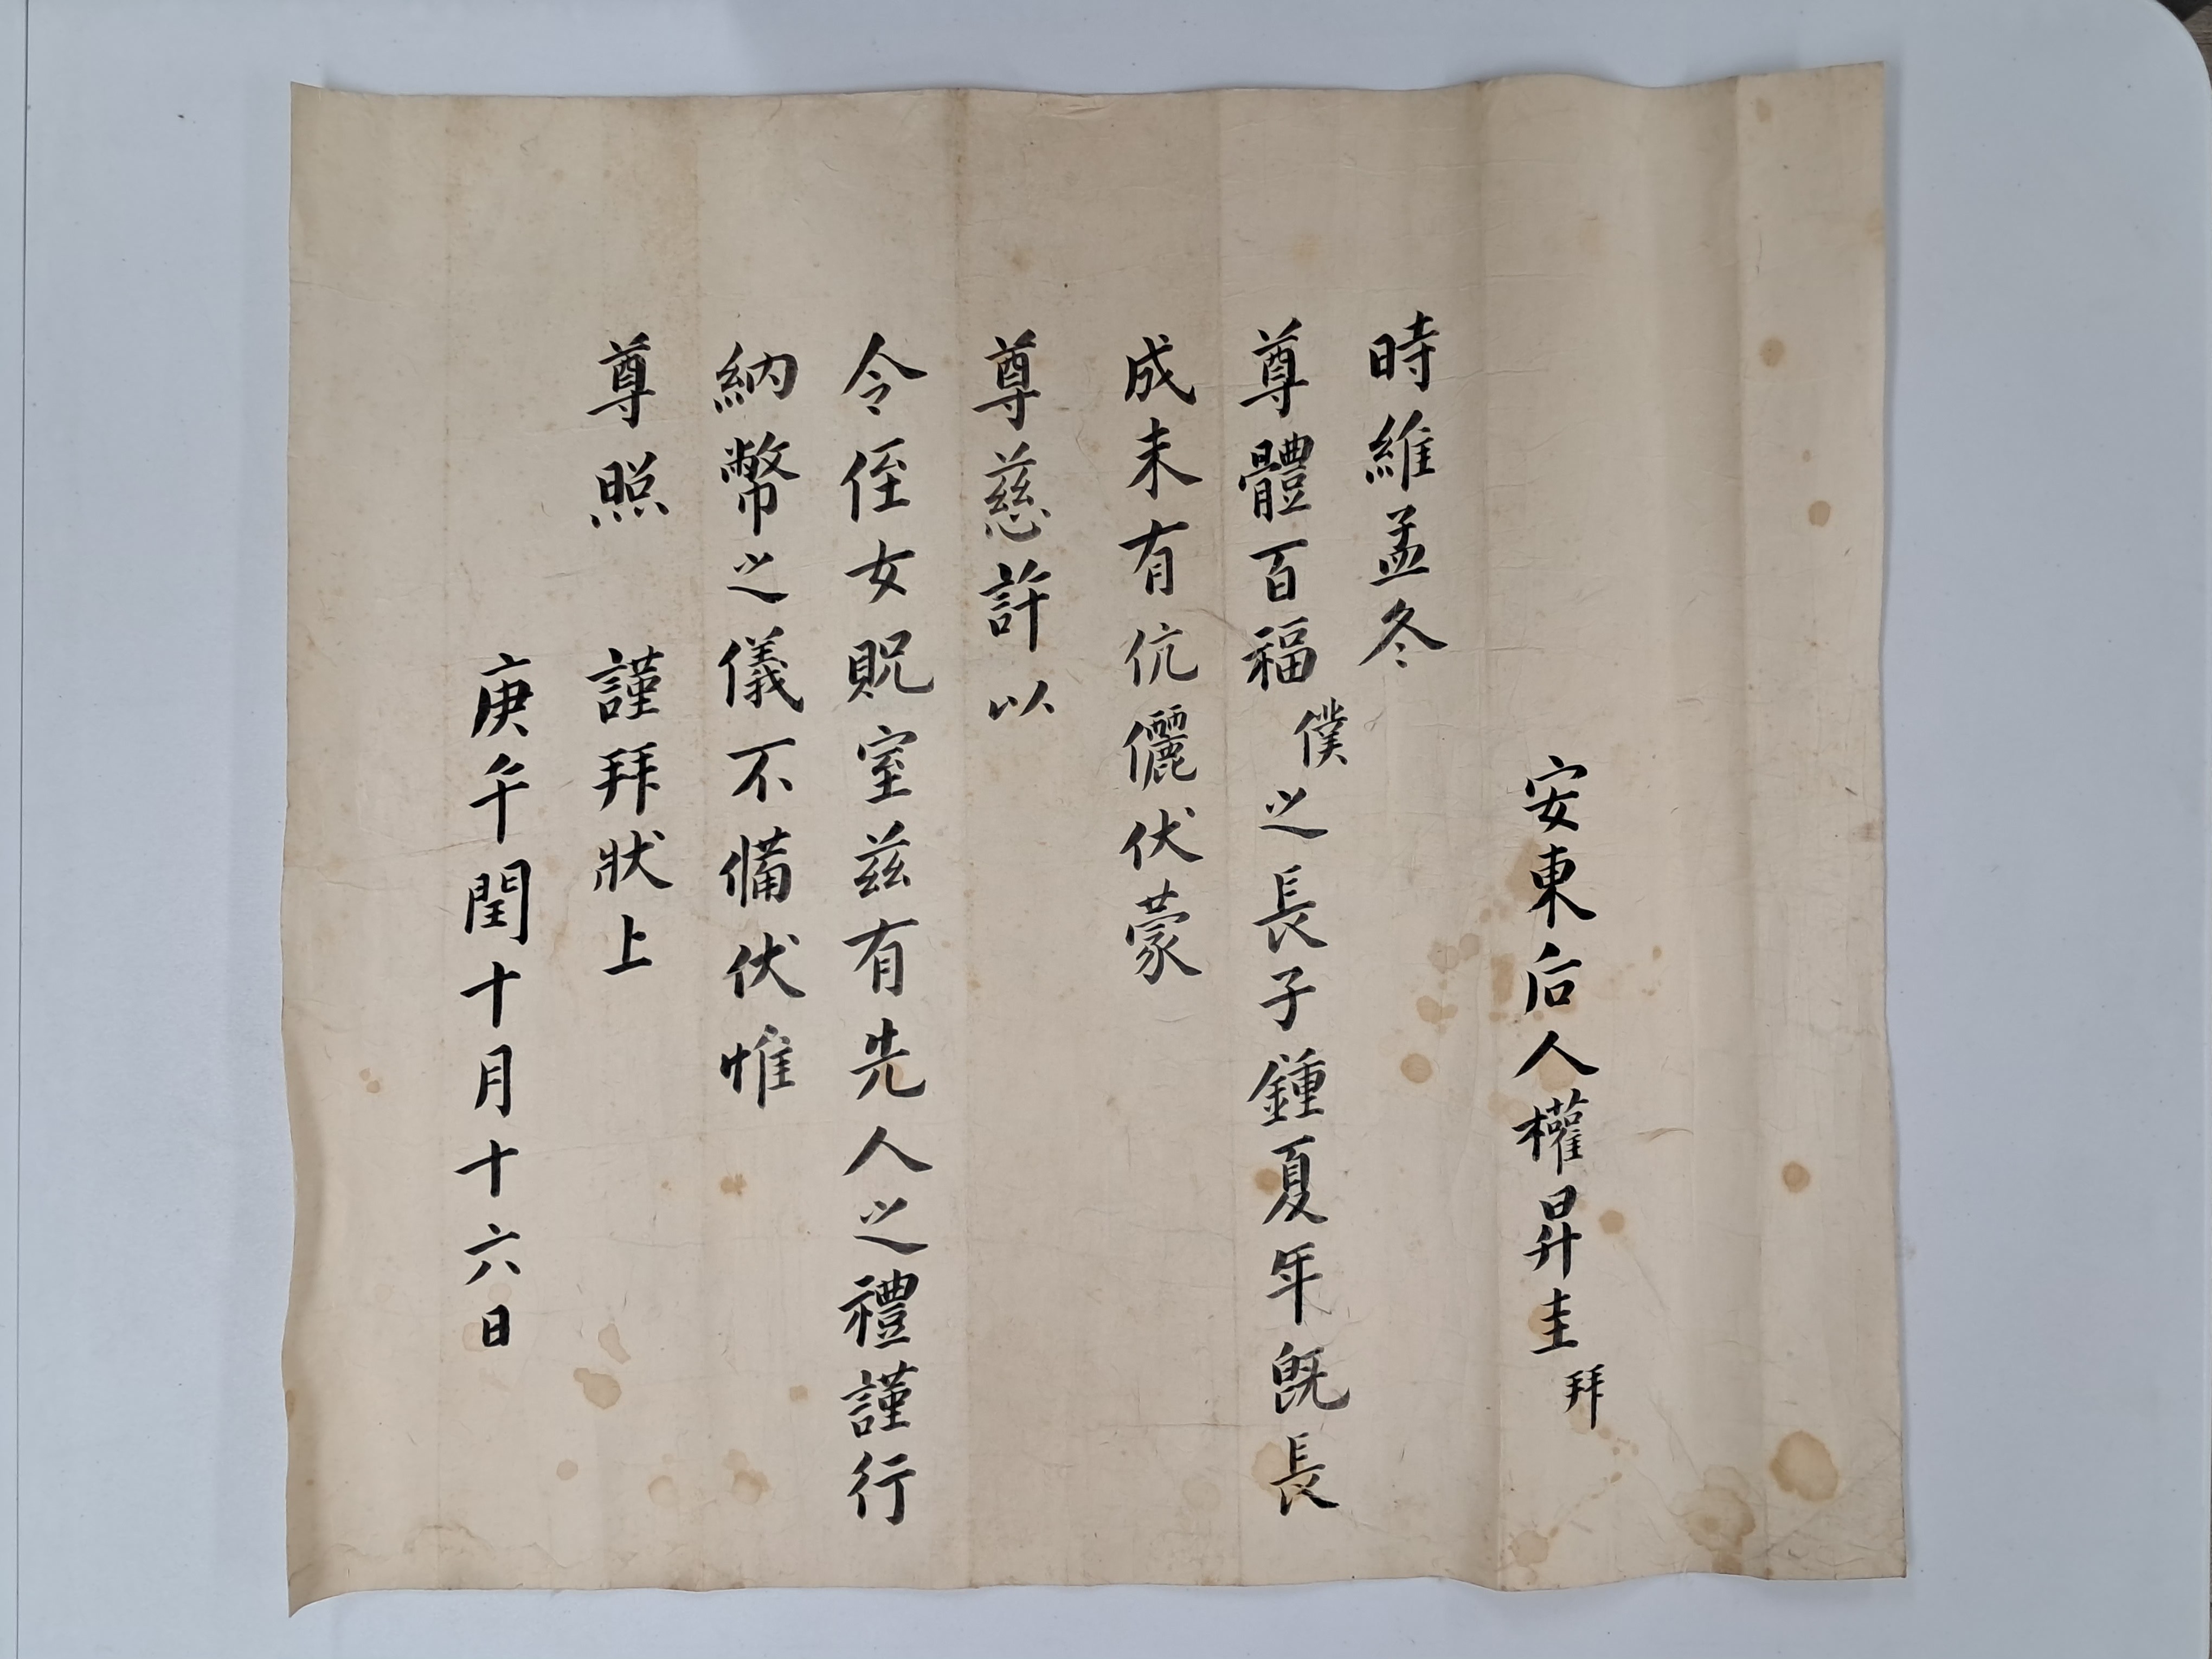 安東后人權昇圭拜
時維孟冬
尊體百福僕之長子鍾夏年旣長
成未有伉儷伏蒙
尊慈許以
令侄女貺室茲有先人之禮謹行
納幣之儀不備伏惟
尊照　謹拜狀上
庚午閏十月十六日